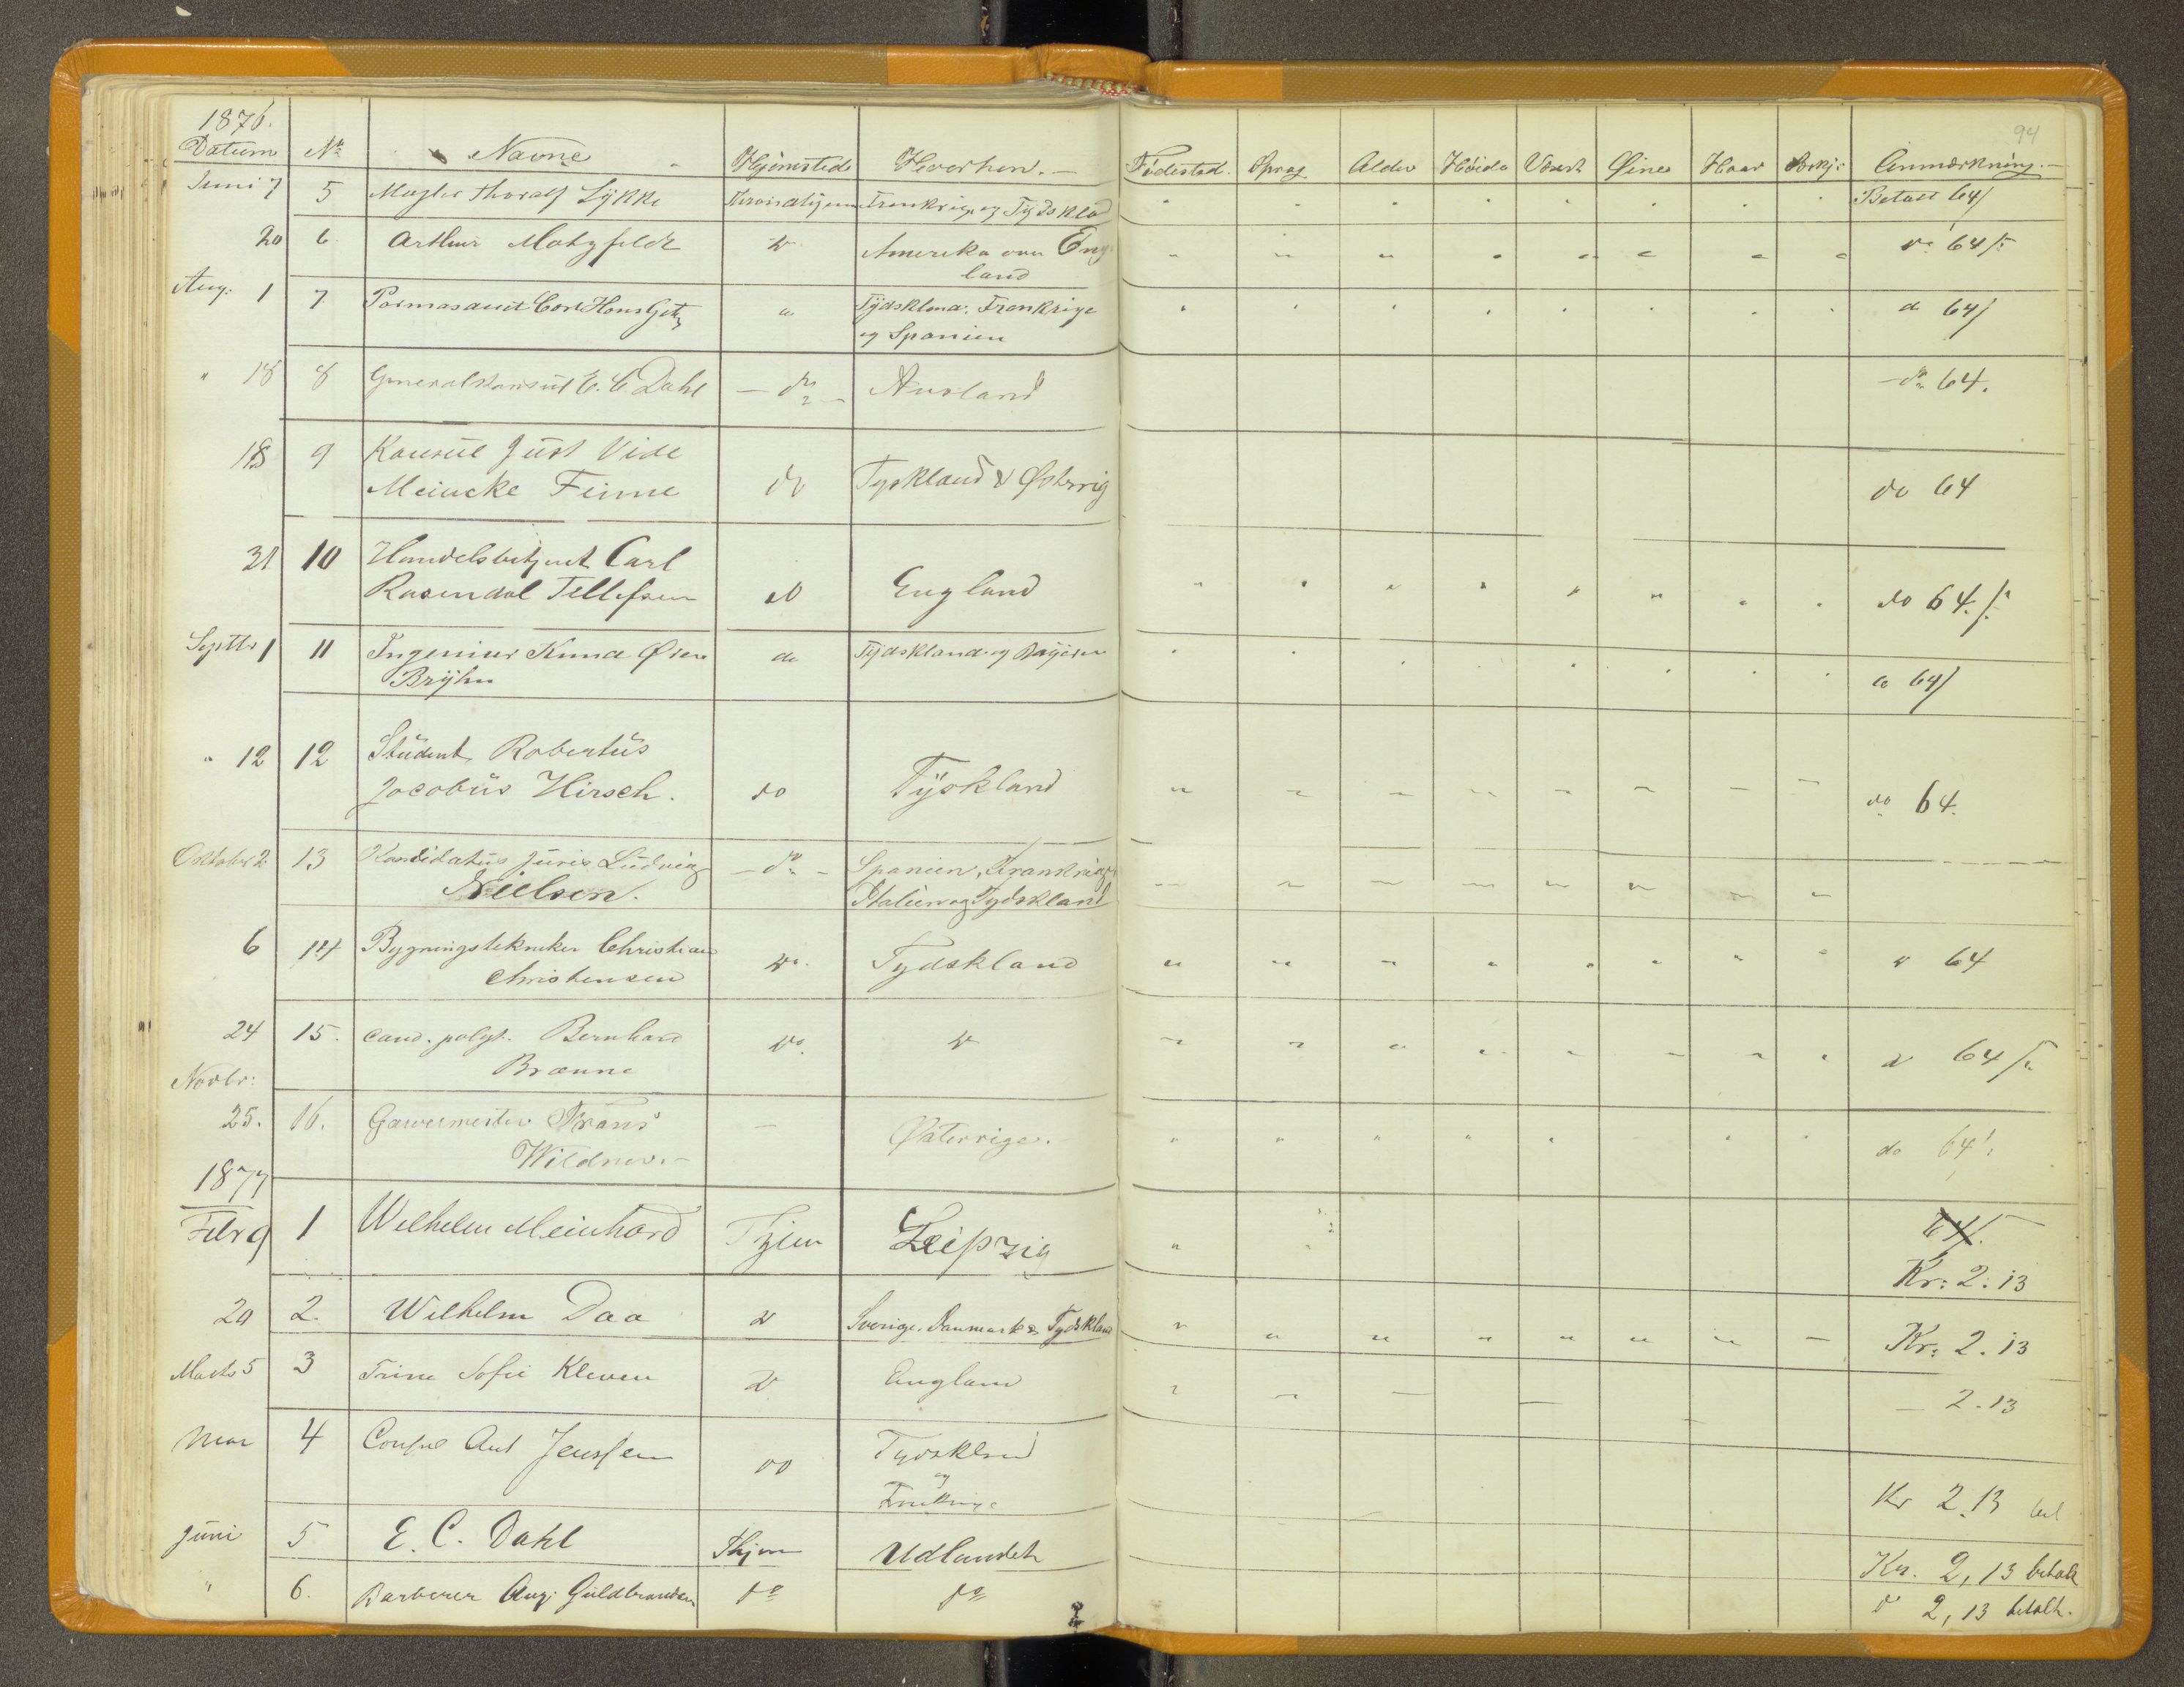 94
1876.
Datum No Navne Hjemsted Hvorhen. Fødested. Sprog Alder Høide Vext Øine Haar Anmærkning.
Juni 7 5 Mægler Thoralf Lykke Throndhjem Frankrig og Tydskld Betalt 64
20 6 Arthur Motzfeldt do Amerika over Eng
land do 64
Aug: 1 7 Carl Hans Tydskland. Frankrige
og Spanien do 64
" 18 8 Generalkonsul E. C. Dahl - do - Rusland - do 64.
18 9 Konsul Just Vide
Meincke Finne do Tyskland & Østrrig do 64
31 10 Handelsbetjent Carl
Rosendal Tellefsen do England do 64.
Septbr 1 11 Ingeniør Knud
Brÿhn do Tÿdskland og Bayern do 64
" 12 12 Student Robertus
Jacobus Hirsch. do Tÿskland do 64.
Oktober 2 13 Kandidatus Juris Ludvig
Nielsen. - do - Spanien, Frankrige
Italien og Tydskland
6 14 Bygningstekniker Christian
Christensen do. Tydskland do 64
24 15. cand. polyt. Bernhard
Brænne do. do do 64
Novbr:
25. 16. Garvermester Frans
Wildner. - Østerrige. do 64
1877
Febr 9 1 Wilhelm Meinhard Thjem Leipzig 64
Kr: 2. 13
20 2. Wilhelm Daa do Sverige. Danmark & Tydskland Kr: 2. 13
Marts 5 3 Trine Sofie Kleven do England - 2. 13
Mar 4 Consul Ant Jenssen do Tydskland
og
Frankrige Kr 2.13 bet
Juni 5 E. C. Dahl Thjem Udlandet Kr. 2,13 betalt
" 6. Barberer Aug. Guldbrandsen do do do 2,13 betalt.